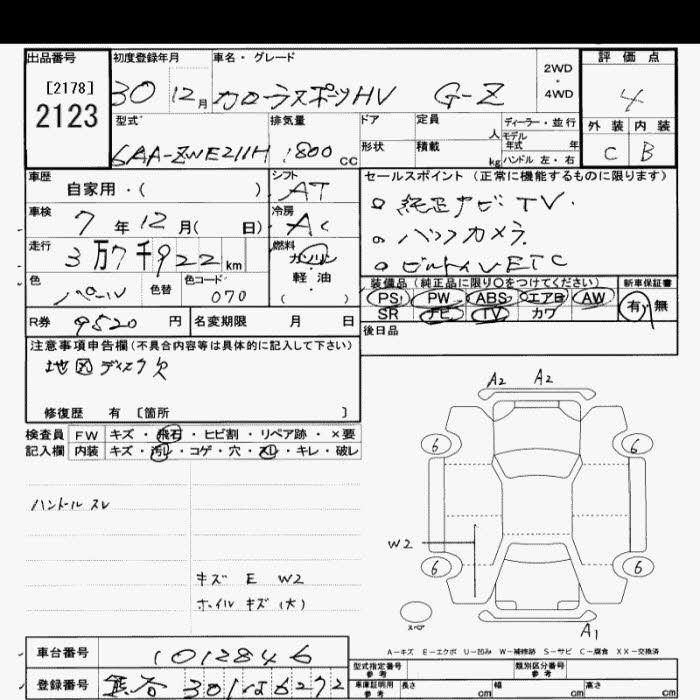 出品番号 初度登録年月 車名・グレード 評価点
[2178] 30 12月 カローラスポーツHV G-Z 2WD・4WD 4
2123
型式 排気量 ドア 定員 人 ディーラー・並行 外装 内装
6AA-ZWE211H 1800cc 形状 積載 kg モデル年式 年 C B
ハンドル 左・右
車歴 自家用・( ) シフト AT セールスポイント(正常に機能するものに限ります)
車検 7年12月( 日) 冷房 AC 純正ナビTV.
走行 3万7千922km 燃料 ガソリン バックカメラ
軽・油 ビルトインETC
色 パール 色替 色コード 070 ( )
装備品(純正品に限り○をつけてください) 新車保証書
PS PW ABS エアB AW 有・無
SR ナビ TV カワ
R券 9520円 名変期限 月 日 後日品
注意事項申告欄(不具合内容等は具体的に記入して下さい)
地図ディスク欠
修復歴 有 [箇所 ]
検査員 FW キズ・飛石・ヒビ割・リペア跡・×要
記入欄 内装 キズ・汚レ・コゲ・穴・スレ・キレ・破レ
A2 A2
6 6
ハンドル スレ
W2
6 6
キズ E W2
ホイルキズ(大)
スペア
A1
A-キズ E-エクボ U-凹み W-補修跡 S-サビ C-腐食 XX-交換済
車台番号 1012846 型式指定番号 参考 類別区分番号 参考
登録番号 熊谷301 6272 車庫証明用 参考 長さ cm 幅 cm 高さ cm